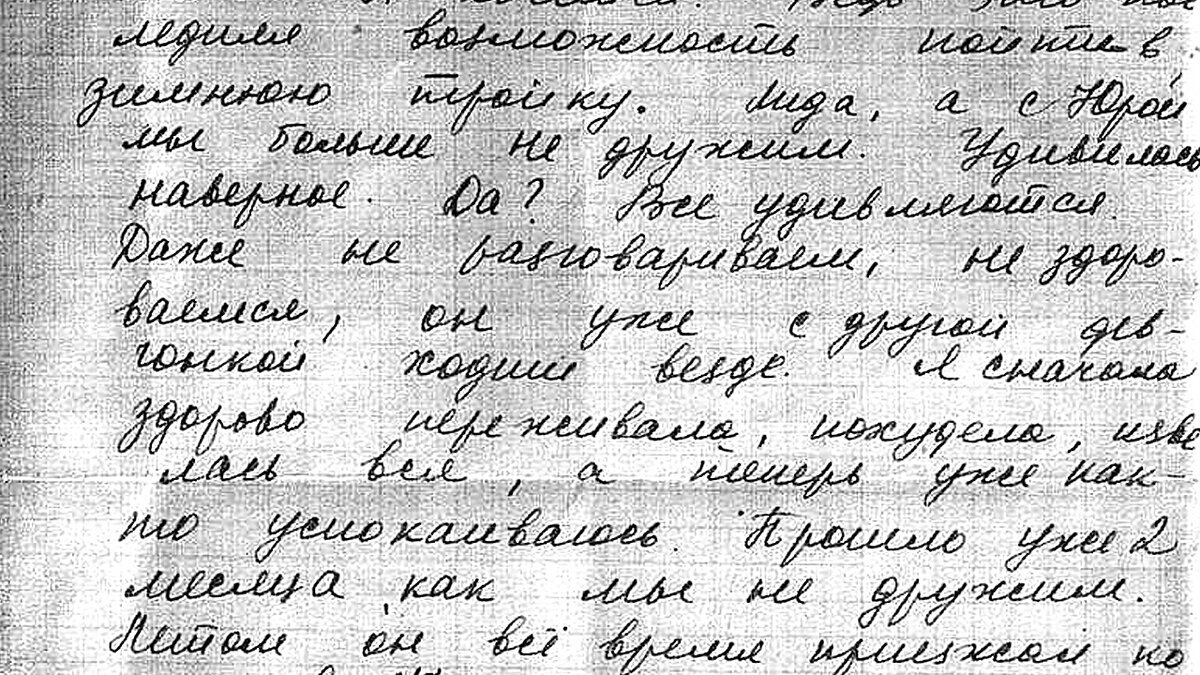 ледняя возможность пойти в
зимнюю тройку. Лида, а с Юрой
мы больше не дружим. Удивилась
наверное. Да? Все удивляются.
Даже не разговариваем, не здоро-
ваемся, он уже с другой дев-
чонкой ходит везде. Я сначала
здорово переживала, похудела, изве
лась вся, а теперь уже как-
то успокаиваюсь. Прошло уже 2
месяца как мы не дружим.
Летом он всё время приезжал ко